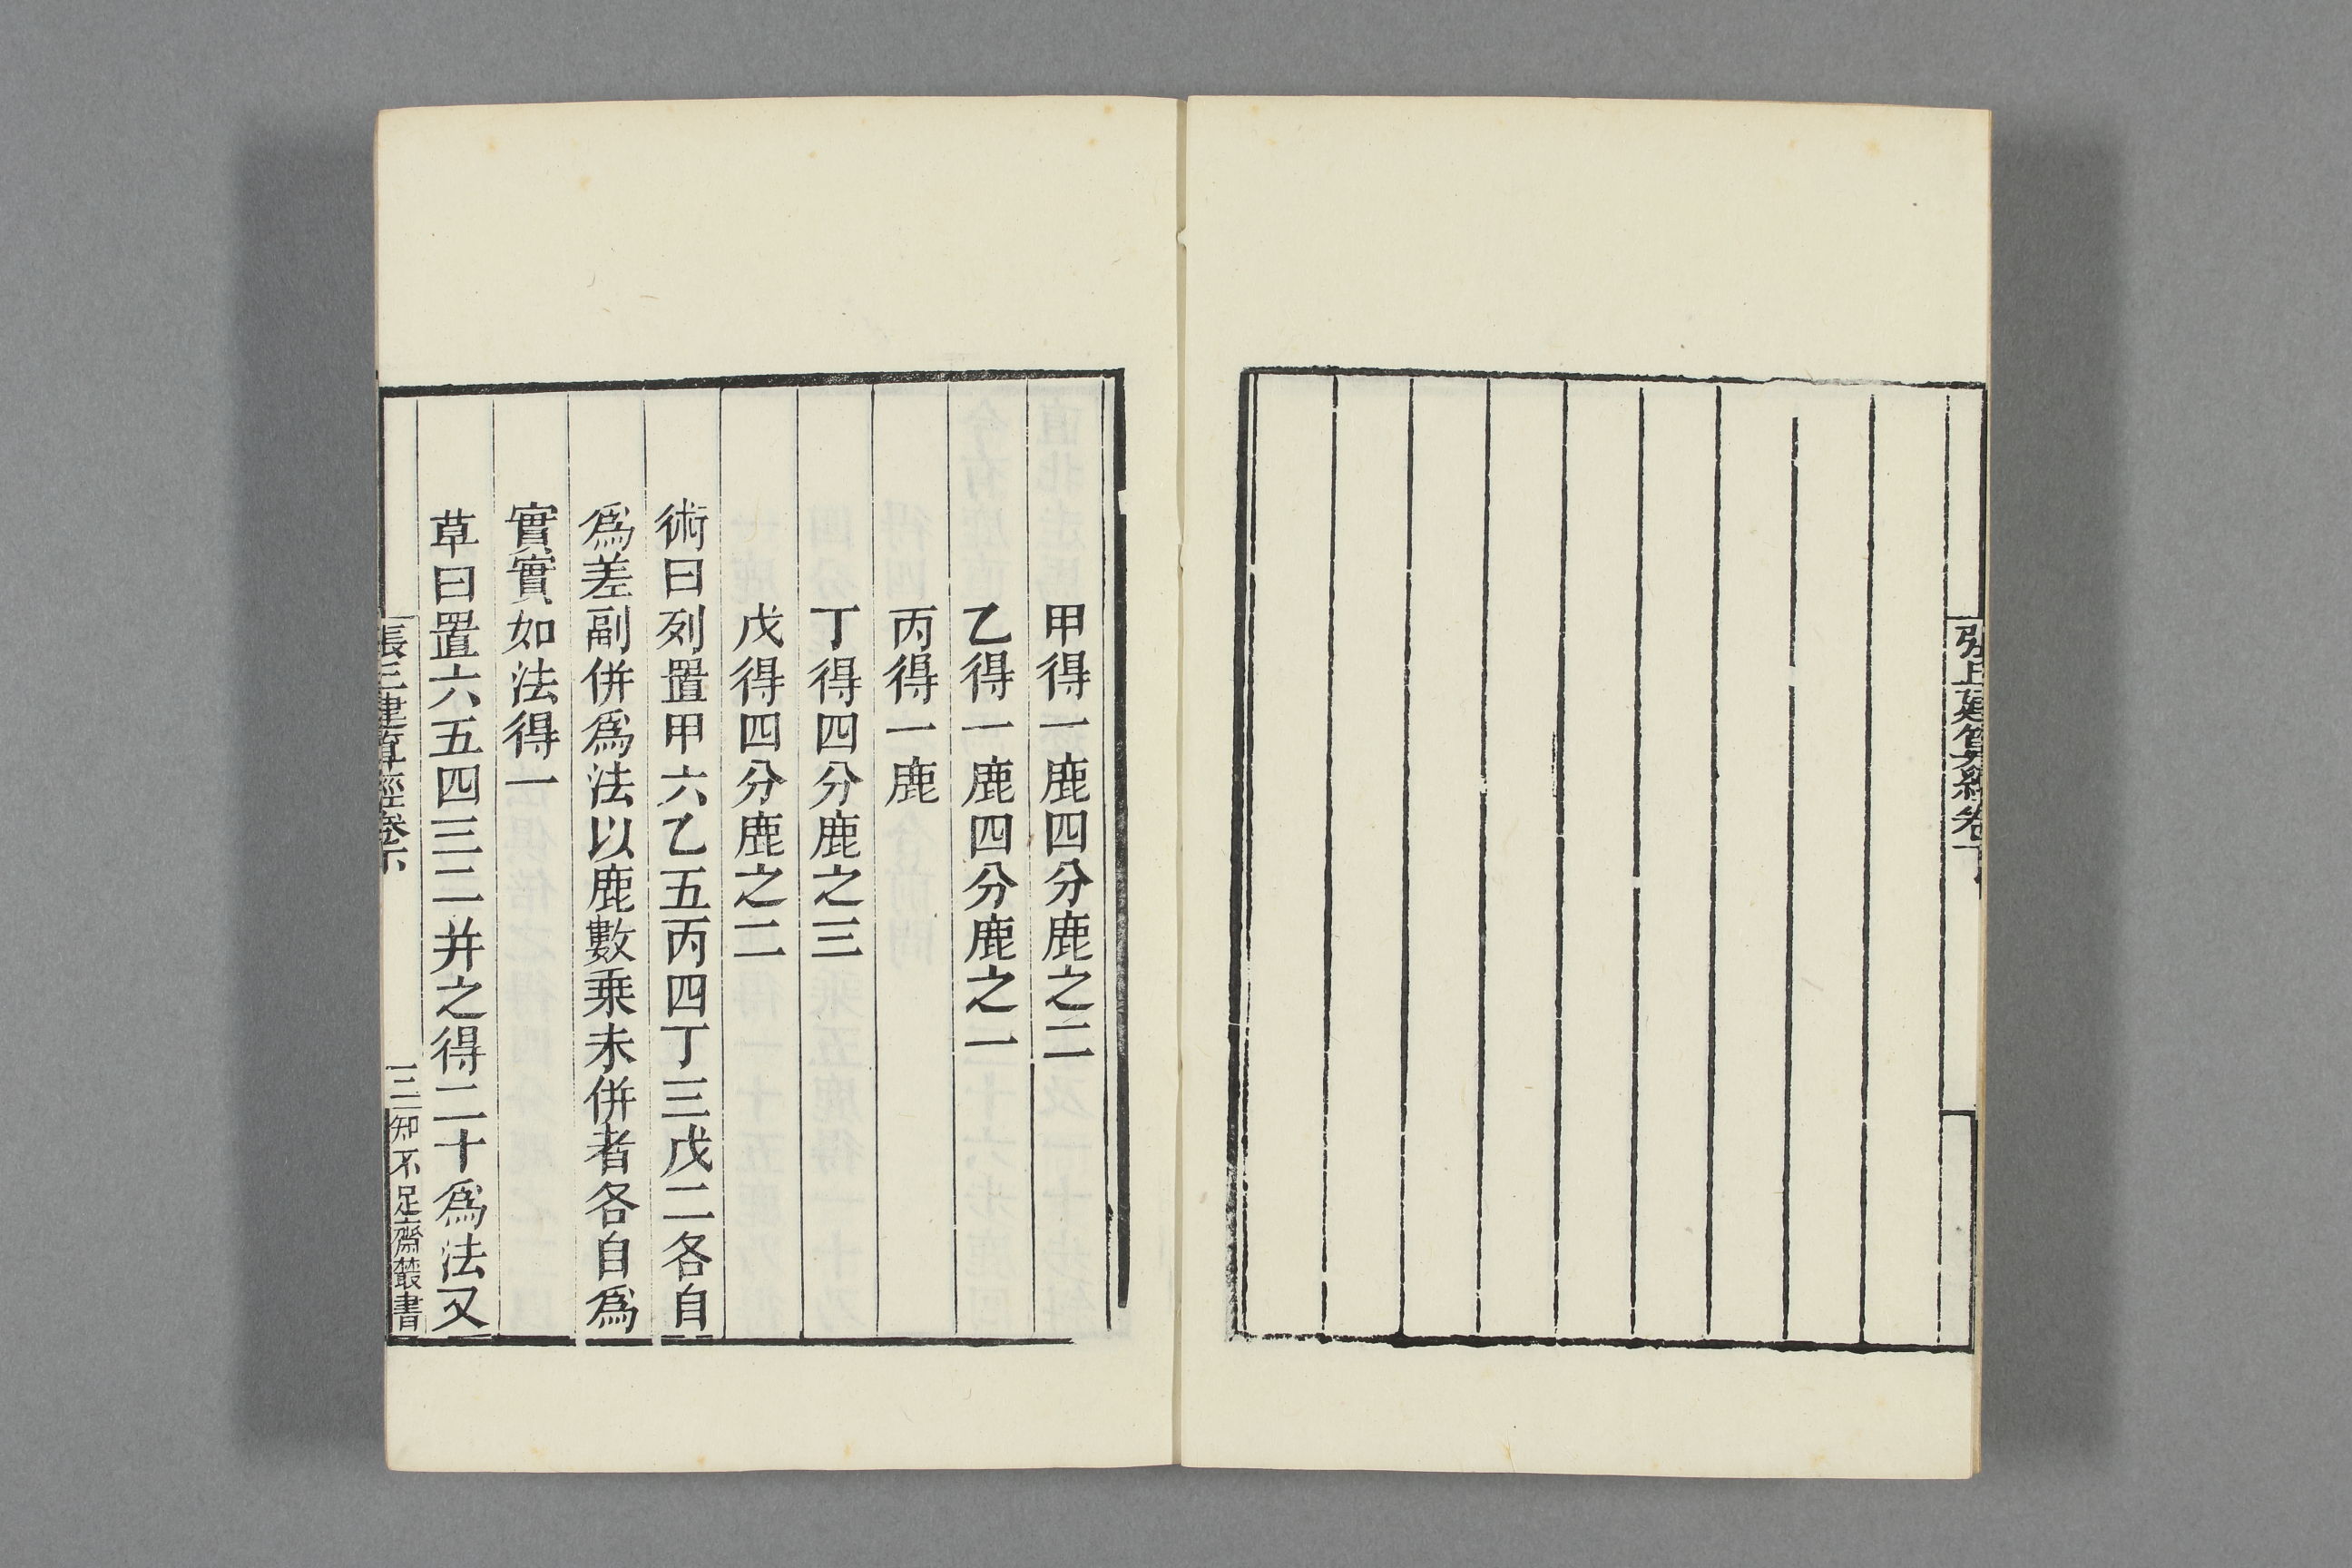 張丘建算經卷下
甲得一鹿四分鹿之二
乙得一鹿四分鹿之一
丙得一鹿
丁得四分鹿之三
戊得四分鹿之二
術曰列置甲六乙五丙四丁三戊二各自
爲差副併爲法以鹿數乘未併者各自爲
實實如法得一
草曰置六五四三二并之得二十爲法又
張丘建算經卷下
三
知不足齋叢書